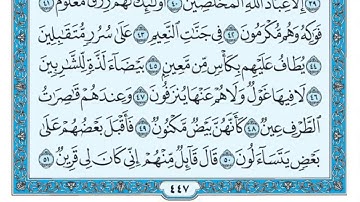 ٣٩ إِلَّا عِبَادَ اللَّهِ الْمُخْلَصِينَ ٤٠ أُولَٰئِكَ لَهُمْ رِزْقٌ مَّعْلُومٌ ٤١
فَوَاكِهُ وَهُم مُّكْرَمُونَ ٤٢ فِي جَنَّاتِ النَّعِيمِ ٤٣ عَلَىٰ سُرُرٍ مُّتَقَابِلِينَ
٤٤ يُطَافُ عَلَيْهِم بِكَأْسٍ مِّن مَّعِينٍ ٤٥ بَيْضَاءَ لَذَّةٍ لِّلشَّارِبِينَ
٤٦ لَا فِيهَا غَوْلٌ وَلَا هُمْ عَنْهَا يُنزَفُونَ ٤٧ وَعِندَهُمْ قَاصِرَاتُ
الطَّرْفِ عِينٌ ٤٨ كَأَنَّهُنَّ بَيْضٌ مَّكْنُونٌ ٤٩ فَأَقْبَلَ بَعْضُهُمْ عَلَىٰ
بَعْضٍ يَتَسَاءَلُونَ ٥٠ قَالَ قَائِلٌ مِّنْهُمْ إِنِّي كَانَ لِي قَرِينٌ ٥١
٤٤٧